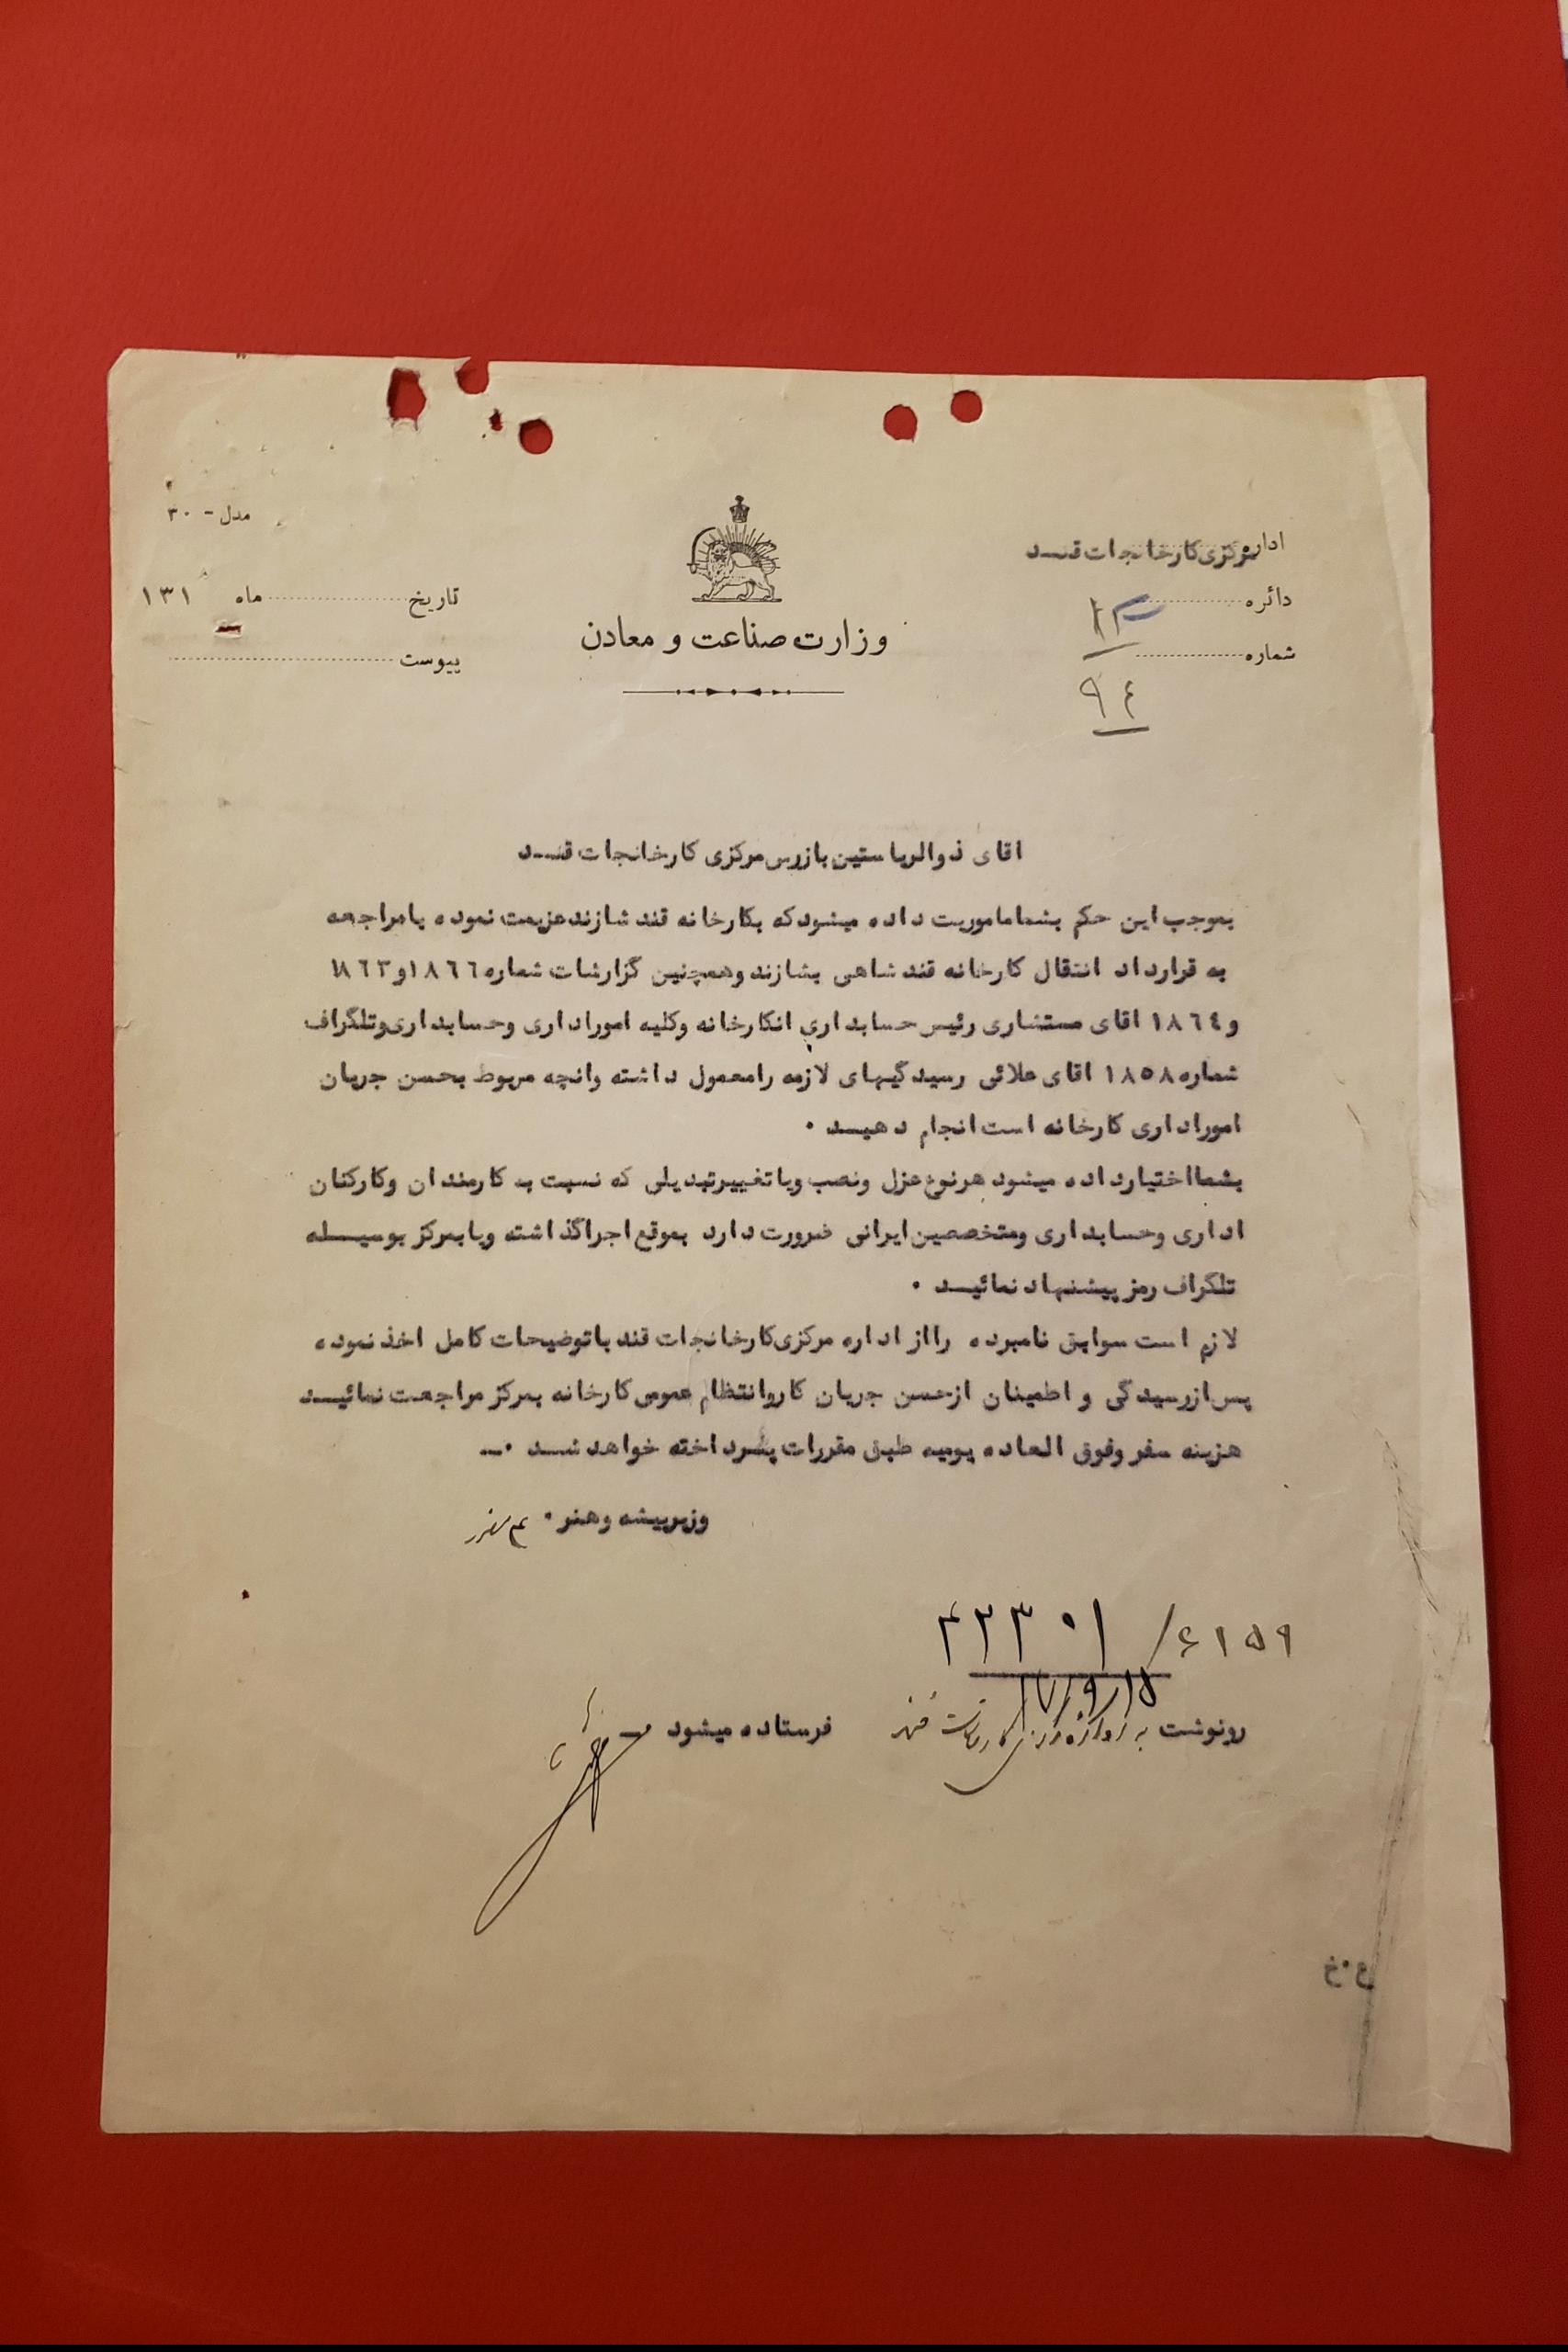 مدل - ۳۰
اداره مرکزی کارخانجات قنــد
دائره
شماره
۹۴
وزارت صناعت و معادن
تاریخ ماه ۱۳۱
پیوست
اقای ذوالریاستین بازرس مرکزی کارخانجات قنــد
بموجب این حکم بشما ماموریت داده میشود که بکارخانه قند شازند عزیمت نموده با مراجعه
به قرارداد انتقال کارخانه قند شاهی بشازند و همچنین گزارشات شماره ۱۸٦٦ و ۱۸٦۳
و ۱۸٦٤ اقای مستشاری رئیس حسابداری انکارخانه و کلیه امور اداری و حسابداری و تلگراف
شماره ۱۸۵۸ اقای علائی رسیدگیهای لازمه را معمول داشته وانچه مربوط بحسن جریان
امور اداری کارخانه است انجام دهیــد ۰
بشما اختیار داده میشود هرنوع عزل ونصب ویا تغییر تبدیلی که نسبت به کارمندان وکارکنان
اداری وحسابداری ومتخصصین ایرانی ضرورت دارد بموقع اجرا گذاشته ویا بمرکز بوسیــله
تلگراف رمز پیشنهاد نمائیــد ۰
لازم است سوابق نامبرده را از اداره مرکزی کارخانجات قند با توضیحات کامل اخذ نموده
پس از رسیدگی و اطمینان از حسن جریان کار و انتظام عمومی کارخانه بمرکز مراجعت نمائیــد
هزینه سفر وفوق العاده یومیه طبق مقررات پرداخته خواهد شــد ۰ــ
وزیر پیشه وهنر ۰
۴۲۳۰۱ / ۶۱۵۹
۱۷/۹/۱۵
رونوشت به فرستاده میشود
ع۰خ